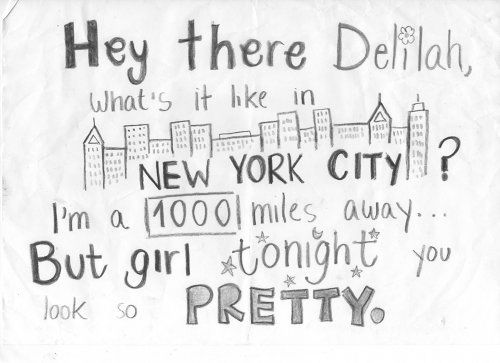 Hey there Delilah,
what's it like in
NEW YORK CITY ?
I'm a 1000 miles away...
But girl tonight you
look so PRETTY.